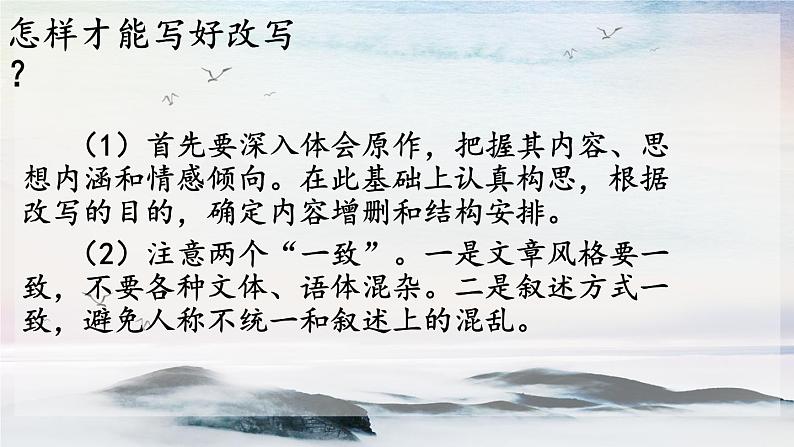 怎样才能写好改写
？
（1）首先要深入体会原作，把握其内容、思
想内涵和情感倾向。在此基础上认真构思，根据
改写的目的，确定内容增删和结构安排。
（2）注意两个“一致”。一是文章风格要一
致，不要各种文体、语体混杂。二是叙述方式一
致，避免人称不统一和叙述上的混乱。